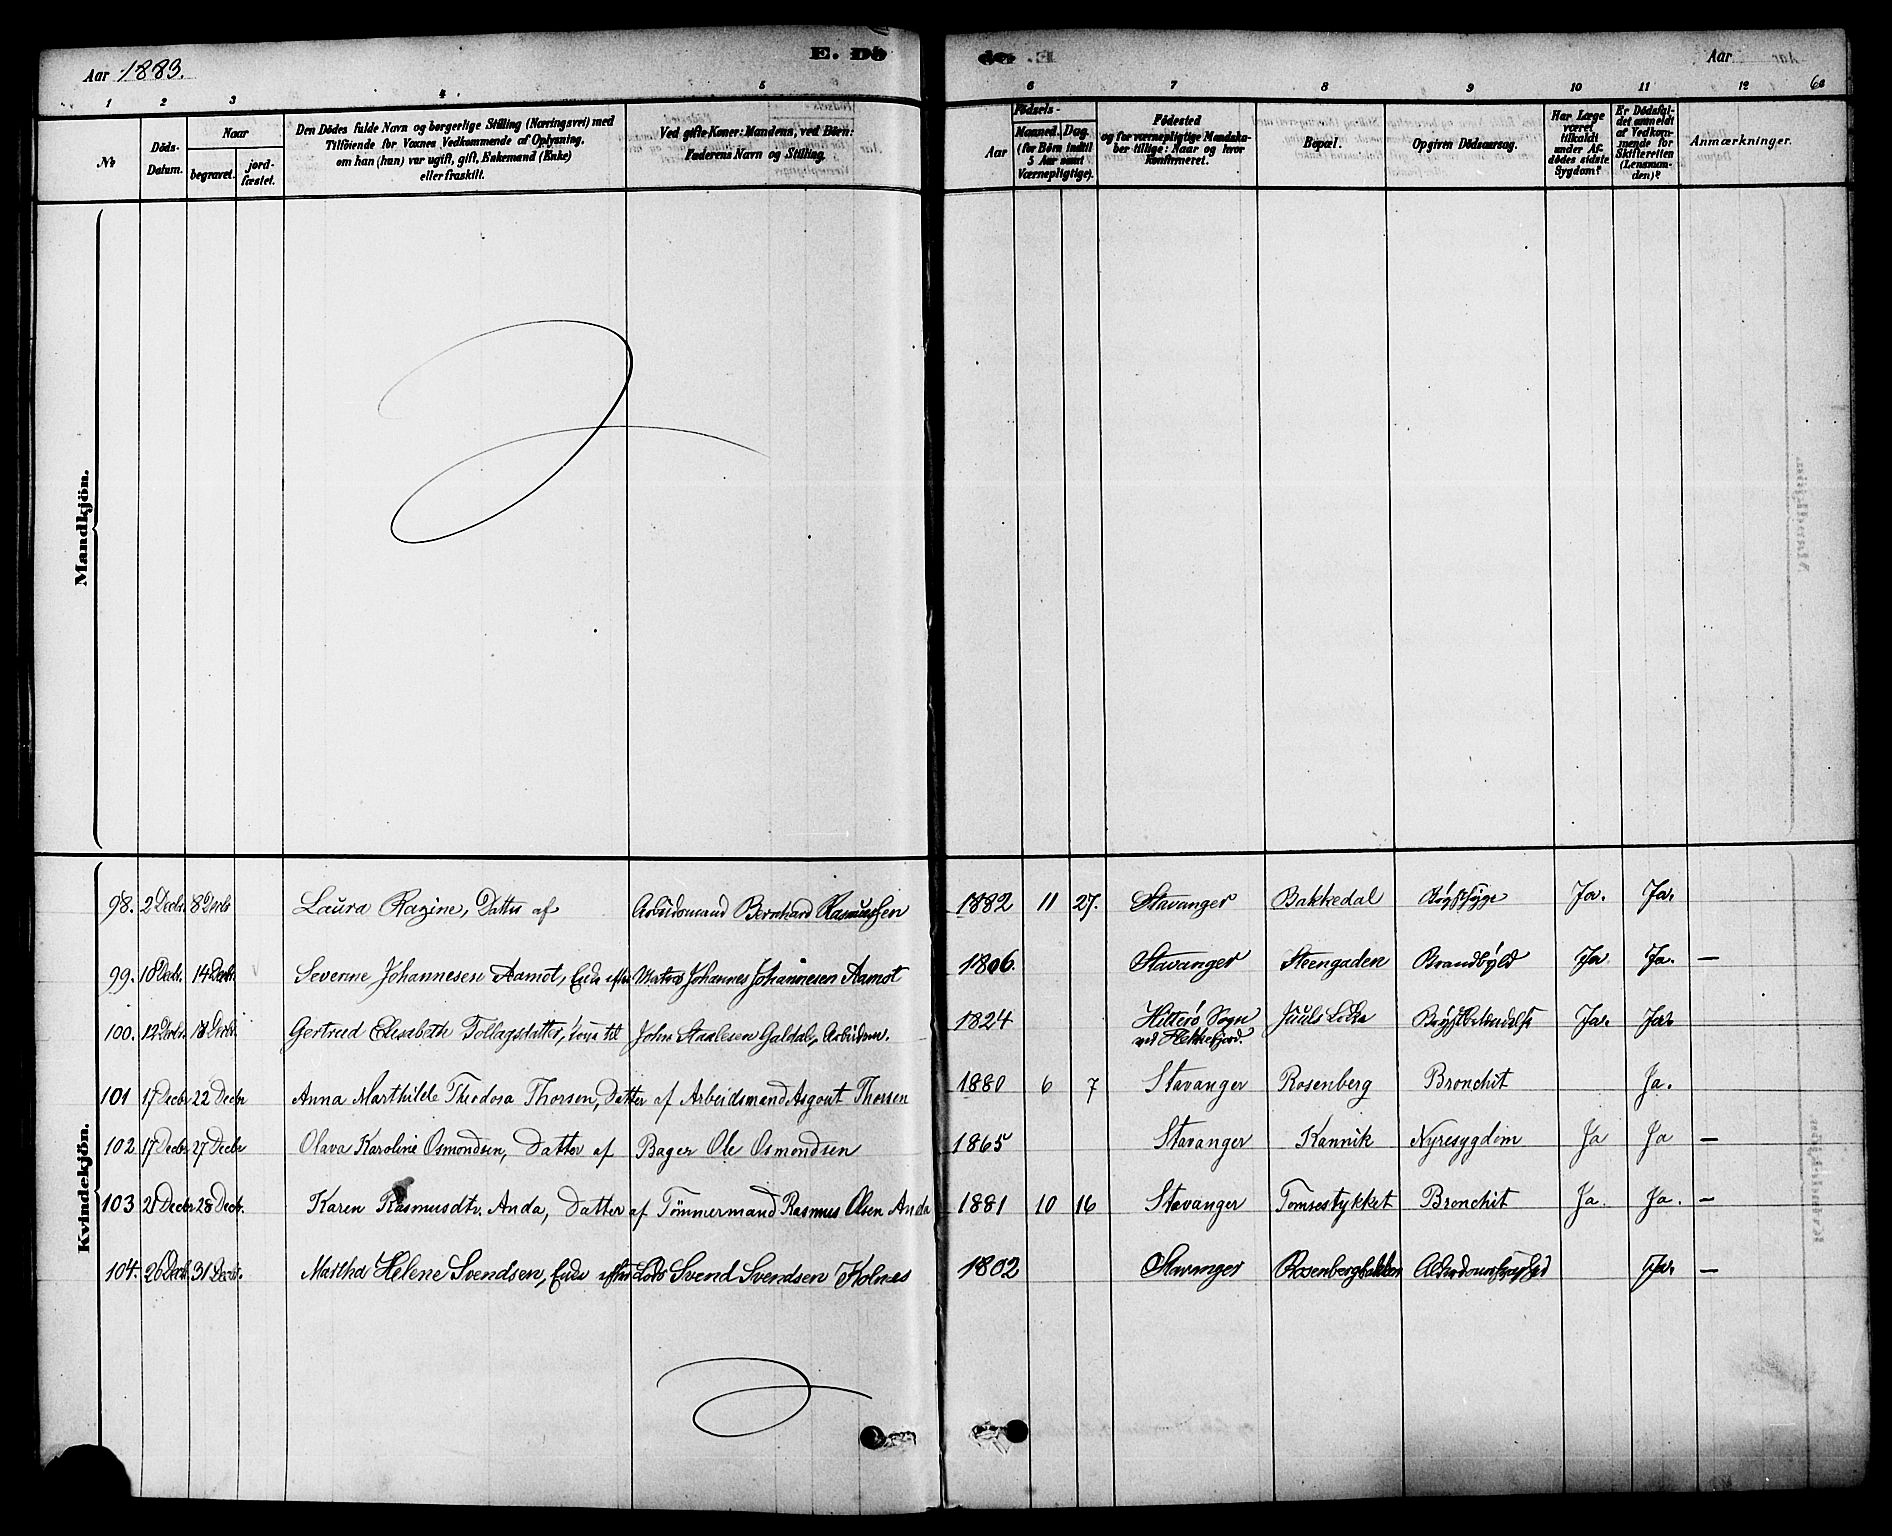 Aar 1883.
E. Dö
de.
Aar
1 2 3 4 5
6 7 8 9 10 11 12 60
No
Döds-Datum.
Naar
begravet.
jord-fæstet.
Den Dödes fulde Navn og borgerlige Stilling (Næringsvei) med
Tilföiende for Voxnes Vedkommende af Oplysning,
om han (hun) var ugift, gift, Enkemand (Enke)
eller fraskilt.
Ved gifte Koner: Mandens, ved Börn:
Faderens Navn og Stilling.
Födsels-
Aar
Maaned. Dag.
(for Börn indtil
5 Aar samt
Værnepligtige).
Födested
og for værnepligtige Mandska-
ber tillige: Naar og hvor
Konfirmeret.
Bopæl.
Opgiven Dödsaarsag.
Har Læge
været
tilkaldt
under Af-
dödes sidste
Sygdom?
Er Dödsfal-
det anmeldt
af Vedkom-
mende for
Skifteretten
(Lensman-
den)?
Anmærkninger.
Mandkjön.
Kvindekjön.
98. 2 Decbr. 8 Decb Laura Ragine, Datter af Arbeidsmand Bernhard Rasmussen 1882 11 27. Stavanger Bakkedal Ja. Ja.
99. 10 Decbr. 14 Decbr Severine Johannesen Aamot, Enke efter Matros Johannes Johannesen Aamot 1806. Stavanger Steengaden Brandbyld Ja Ja. —
100. 12 Decbr. 18 Decbr Gertrud Elisabeth Tollagsdatter, Kone til John Staalesen Galdal, Arbeidsm. 1824 Hitterø Sogn Juuls Ja. Ja.
ved Flekkefjord.
101 17 Decbr 22 Decbr Anna Marthilde Theodosa Thorsen, Datter af Arbeidsmand Asgout Thorsen 1880 6 7 Stavanger Rosenberg Bronchit Ja.
102 17 Decbr 27 Decbr Olava Karoline Osmondsen, Datter af Bager Ole Osmondsen 1865 Stavanger Kannik Nyresygdom Ja Ja —
103 21 Decbr 28 Decb. Karen Rasmusdtr. Anda, Datter af Tömmermand Rasmus Olsen Anda 1881 10 16 Stavanger Tomsestykket Bronchit Ja. Ja. —
104. 26 Decb. 31 Decbr. Martha Helene Svendsen, Enke efter Lods Svend Svendsen Kolnes 1802 Stavanger Rosenbergbakken Alderdomssvaghed Ja. —